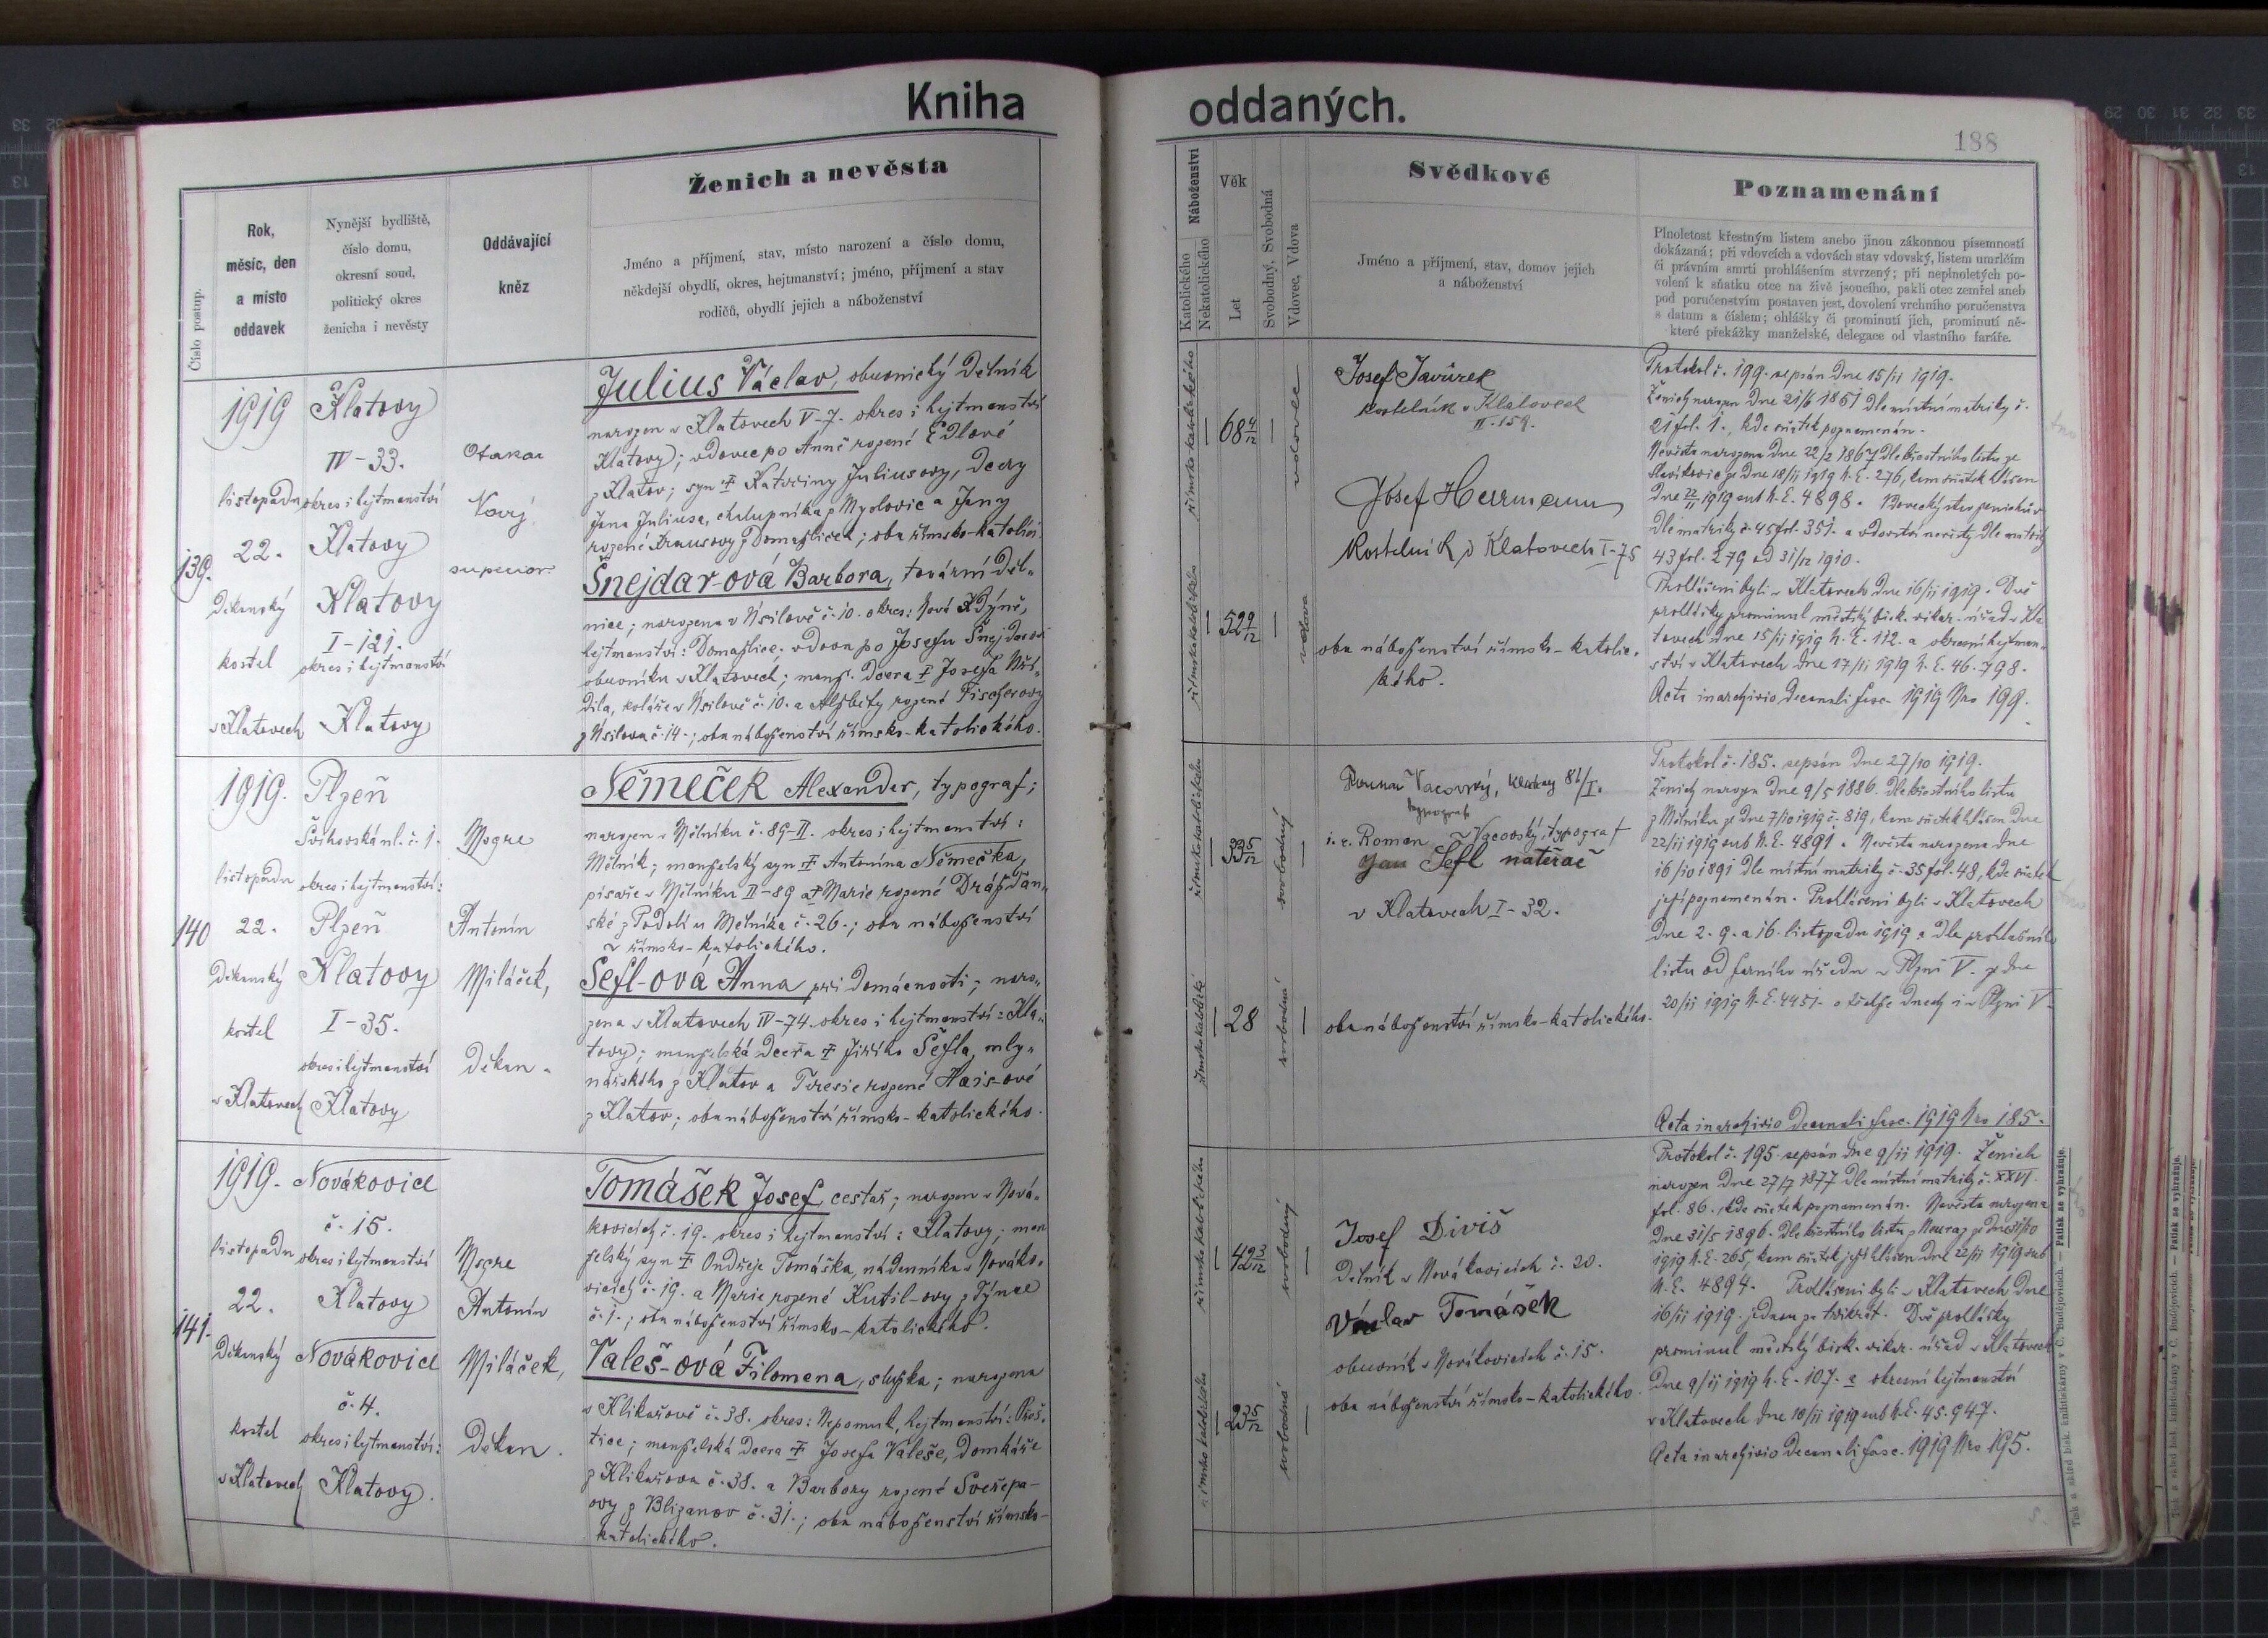 Kniha oddaných.
188
Číslo postup.
Rok,
měsíc, den
a místo
oddavek
Nynější bydliště,
číslo domu,
okresní soud,
politický okres
ženicha i nevěsty
Oddávající
kněz
Ženich a nevěsta
Jméno a příjmení, stav, místo narození a číslo domu,
někdejší obydlí, okres, hejtmanství; jméno, příjmení a stav
rodičů, obydlí jejich a náboženství
Náboženství
Katolického
Nekatolického
Věk
Let
Svobodný, Svobodná
Vdovec, Vdova
Svědkové
Jméno a příjmení, stav, domov jejich
a náboženství
Poznamenání
Plnoletost křestným listem anebo jinou zákonnou písemností
dokázaná; při vdovcích a vdovách stav vdovský, listem umrlčím
či právním smrti prohlášením stvrzený; při neplnoletých po-
volení k sňatku otce na živě jsoucího, pakli otec zemřel aneb
pod poručenstvím postaven jest, dovolení vrchního poručenstva
s datum a číslem; ohlášky či prominutí jich, prominutí ně-
které překážky manželské, delegace od vlastního faráře.
139.
1919
listopadu
22.
Děkanský
kostel
v Klatovech
Klatovy
IV-33.
okres i hejtmanství
Klatovy
Klatovy
I-121.
okres i hejtmanství
Klatovy
Otakar
Nový,
superior
Julius Václav, obuvnický dělník
narozen v Klatovech V-7. okres i hejtmanství
Klatovy; vdovec po Anně rozené Edlové
z Klatov; syn † Kateřiny Juliusovy, dcery
Jana Juliusa, chalupníka z Mydlovic a Jany
rozené Krausovy z Domažlicek; oba římsko-katolíci.
Šnejdar-ová Barbora, tovární děl-
nice; narozena v Úsilově č. 10. okres: Nová Kdýně,
hejtmanství: Domažlice. vdova po Josefu Šnejdarovi
obuvníku v Klatovech; manž. dcera † Josefa
dila, koláře v Úsilově č. 10. a Alžběty rozené Fischerovy
z Úsilova č. 14.; oba náboženství římsko-katolického.
římskokatolického
68 4/12
vdovec
římskokatolického
52 9/12
vdova
Josef Javůrek
kostelník v Klatovech
II-159.
Josef Herrmann
Kostelník v Klatovech I-75
oba náboženství římsko-katolic-
kého.
Protokol č. 199. sepsán dne 15/11 1919.
Ženich narozen dne 21/6 1851 dle místní matriky č.
21 fol. 1., kde sňatek poznamenán.
Nevěsta narozena dne 22/2 1867 dle křestního listu ze
Slavíkovic ze dne 18/11 1919 N. E. 276, kam sňatek hlášen
dne 22/11 1919 sub N. E. 4898. Vdovecký stav ženichův
dle matriky č. 45 fol. 351. a vdovství nevěsty dle matriky
43 fol. 279 od 31/12 1910.
Prohlášeni byli v Klatovech dne 16/11 1919. Dvě
prohlášky prominul městský bisk. vikar. úřad v Kla
tovech dne 15/11 1919 N. E. 112. a okresní hejtman-
ství v Klatovech dne 17/11 1919 N. E. 46.798.
Acta in archivio decanali fasc. 1919 Nro 199.
140
1919.
listopadu
22.
Děkanský
kostel
v Klatovech
Plzeň
Švihovská ul. č. 1.
okres i hejtmanství:
Plzeň
Klatovy
I-35.
okres i hejtmanství
Klatovy
Msgre
Antonín
Miláček,
Děkan.
Němeček Alexander, typograf;
narozen v Mělníku č. 89-II. okres i hejtmanství:
Mělník; manželský syn † Antonína Němečka,
písaře v Mělníku II-89 a † Marie rozené Dráždan-
ské z Podolí u Mělníka č. 26.; oba náboženství
římsko-katolického.
Šefl-ová Anna při domácnosti; naro-
zena v Klatovech IV-74. okres i hejtmanství: Kla-
tovy; manželská dcera † Jiřího Šefla, mly-
nářského z Klatov a Teresie rozené Hais-ové
z Klatov; oba náboženství římsko-katolického.
římskokatolického
33 5/12
svobodný
římskokatolické
28
svobodná
Roman Vacovský, Klatovy 81/I.
typograf
i. e. Roman Vacovský, typograf
Jan Šefl natěrač
v Klatovech I-32.
oba náboženství římsko-katolického.
Protokol č. 185. sepsán dne 27/10 1919.
Ženich narozen dne 9/5 1886. dle křestního listu
z Mělníka ze dne 7/10 1919 č. 819, kam sňatek hlášen dne
22/11 1919 sub N. E. 4891. Nevěsta narozena dne
16/10 1891 dle místní matriky č. 35 fol. 48, kde sňatek
její poznamenán. Prohlášeni byli v Klatovech
dne 2. 9. a 16. listopadu 1919 a dle prohlašního
listu od farního úřadu v Plzni V. ze dne
20/11 1919 N. E. 4451. v těchže dnech i v Plzni V.
Acta in archivio decanali fasc. 1919 Nro 185.
141.
1919.
listopadu
22.
Děkanský
kostel
v Klatovech
Novákovice
č. 15.
okres i hejtmanství
Klatovy
Novákovice
č. 4.
okres i hejtmanství:
Klatovy.
Msgre
Antonín
Miláček,
Děkan.
Tomášek Josef, cestář; narozen v Nová-
kovicích č. 19. okres i hejtmanství: Klatovy; man
želský syn † Ondřeje Tomáška, nádenníka v Nováko-
vicích č. 19. a Marie rozené Kutil-ovy z Týnce
č. 1.; oba náboženství římsko-katolického.
Valeš-ová Filomena, služka; narozena
v Klikařově č. 38. okres: Nepomuk, hejtmanství: Přeš-
tice; manželská dcera † Josefa Valeše, domkáře
z Klikařova č. 38. a Barbory rozené Sveřepa-
ovy z Blizanov č. 31.; oba náboženství římsko-
katolického.
římskokatolického
42 3/12
svobodný
římskokatolického
23 5/12
svobodná
Josef Diviš
Dělník v Novákovicích č. 20.
Václav Tomášek
obuvník v Novákovicích č. 15.
oba náboženství římsko-katolického.
Protokol č. 195. sepsán dne 9/11 1919. Ženich
narozen dne 27/7 1877 dle místní matriky č. XXVI.
fol. 86., kde sňatek poznamenán. Nevěsta narozena
dne 31/5 1896. dle křestního listu z Neuraz ze dne 31/10
1919 N. E. 265, kam sňatek její hlášen dne 22/11 1919 sub
N. E. 4894. Prohlášeni byli v Klatovech dne
16/11 1919. jednou za třikrát. Dvě prohlášky
prominul městský bisk. vikar. úřad v Klatovech
dne 9/11 1919 N. E. 107. a okresní hejtmanství
v Klatovech dne 10/11 1919 sub N. E. 45.947.
Acta in archivio decanali fasc. 1919 Nro 195.
Tisk a sklad bisk. knihtiskárny v Č. Budějovicích. — Patisk se vyhražuje.